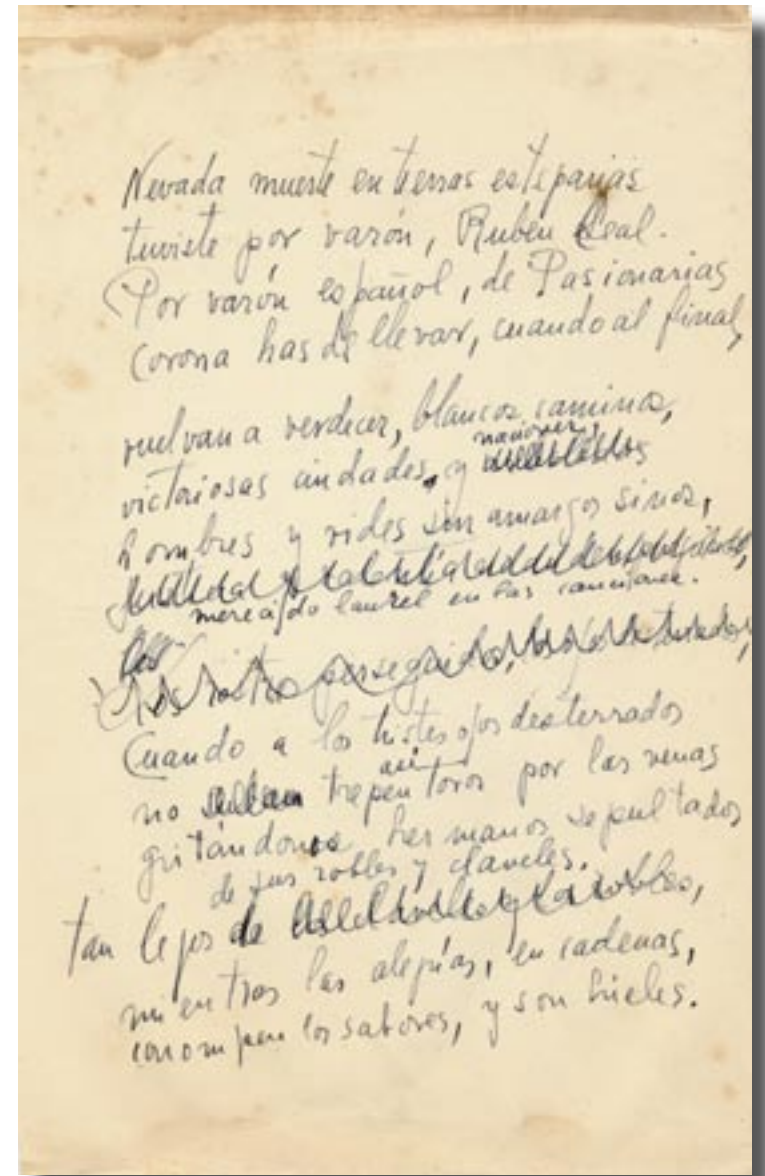 Nevada muerte en tierras esteparias
tuviste por varón, Rubén Leal.
Por varón español, de Pasionarias
corona has de llevar, cuando al final,
vuelvan a verdecer, blancos caminos,
naciones,
victoriosas ciudades, y
hombres y vides sin amargos sinos,
merecido laurel en las canciones.
Los
perseguidos, los
Cuando a los tristes ojos desterrados
no trepen así toros por las venas
gritándonos hermanos sepultados
de sus robles y claveles.
tan lejos de
mientras las alegrías, en cadenas,
corrompen los sabores, y son hieles.